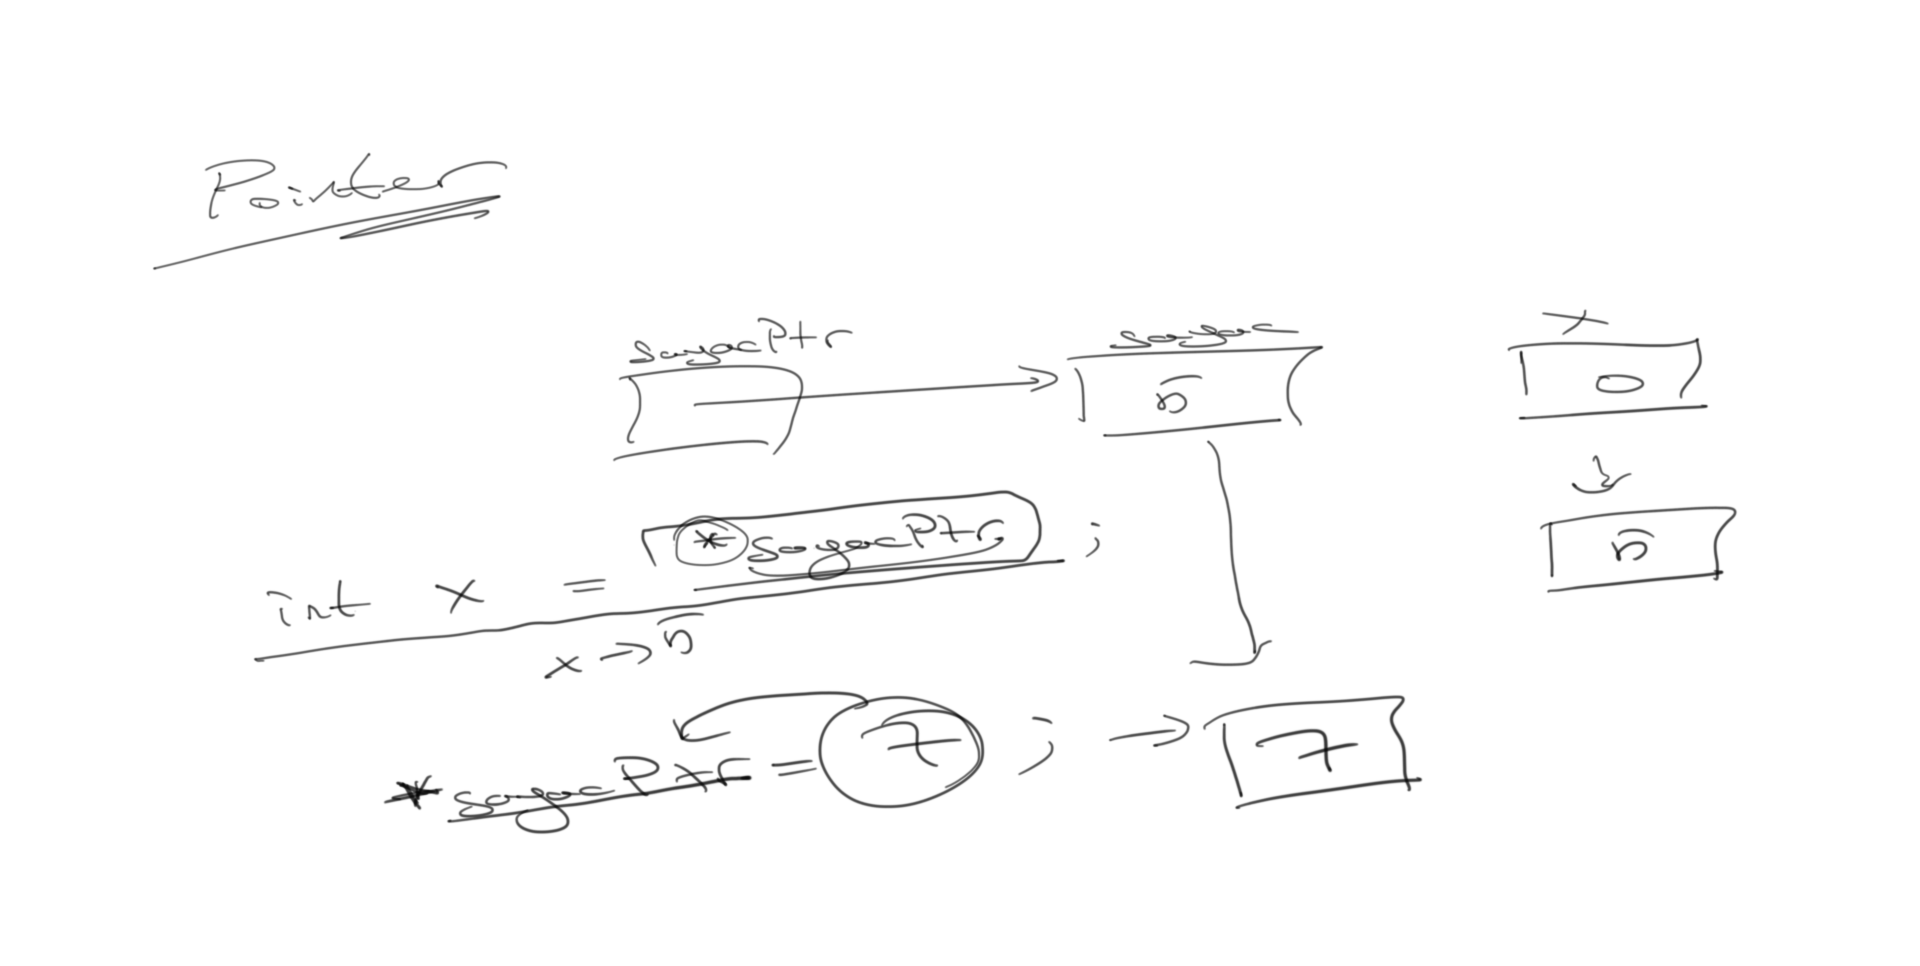 Pointer
sayacPtr
sayac
5
x
0
5
int x = *sayacPtr;
x → 5
*sayacPtr = 7; → 7